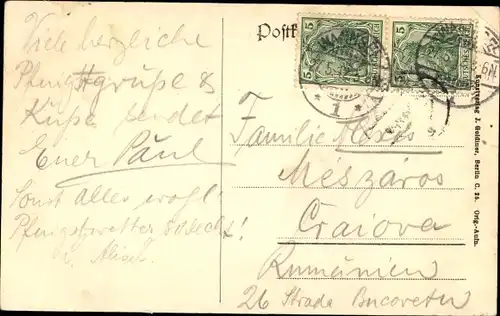 Viele herzliche
Pfingstgrüße &
Küsse sendet
Euer Paul
Sonst Alles wohl.
Pfingstwetter schlecht!
Postk
5 5
5 5
* 1 *
Familie
Mészáros
Craiova
Rumänien
26 Strada Bucovetu
J. Goldiner, Berlin C. 25. Orig.-Aufn.